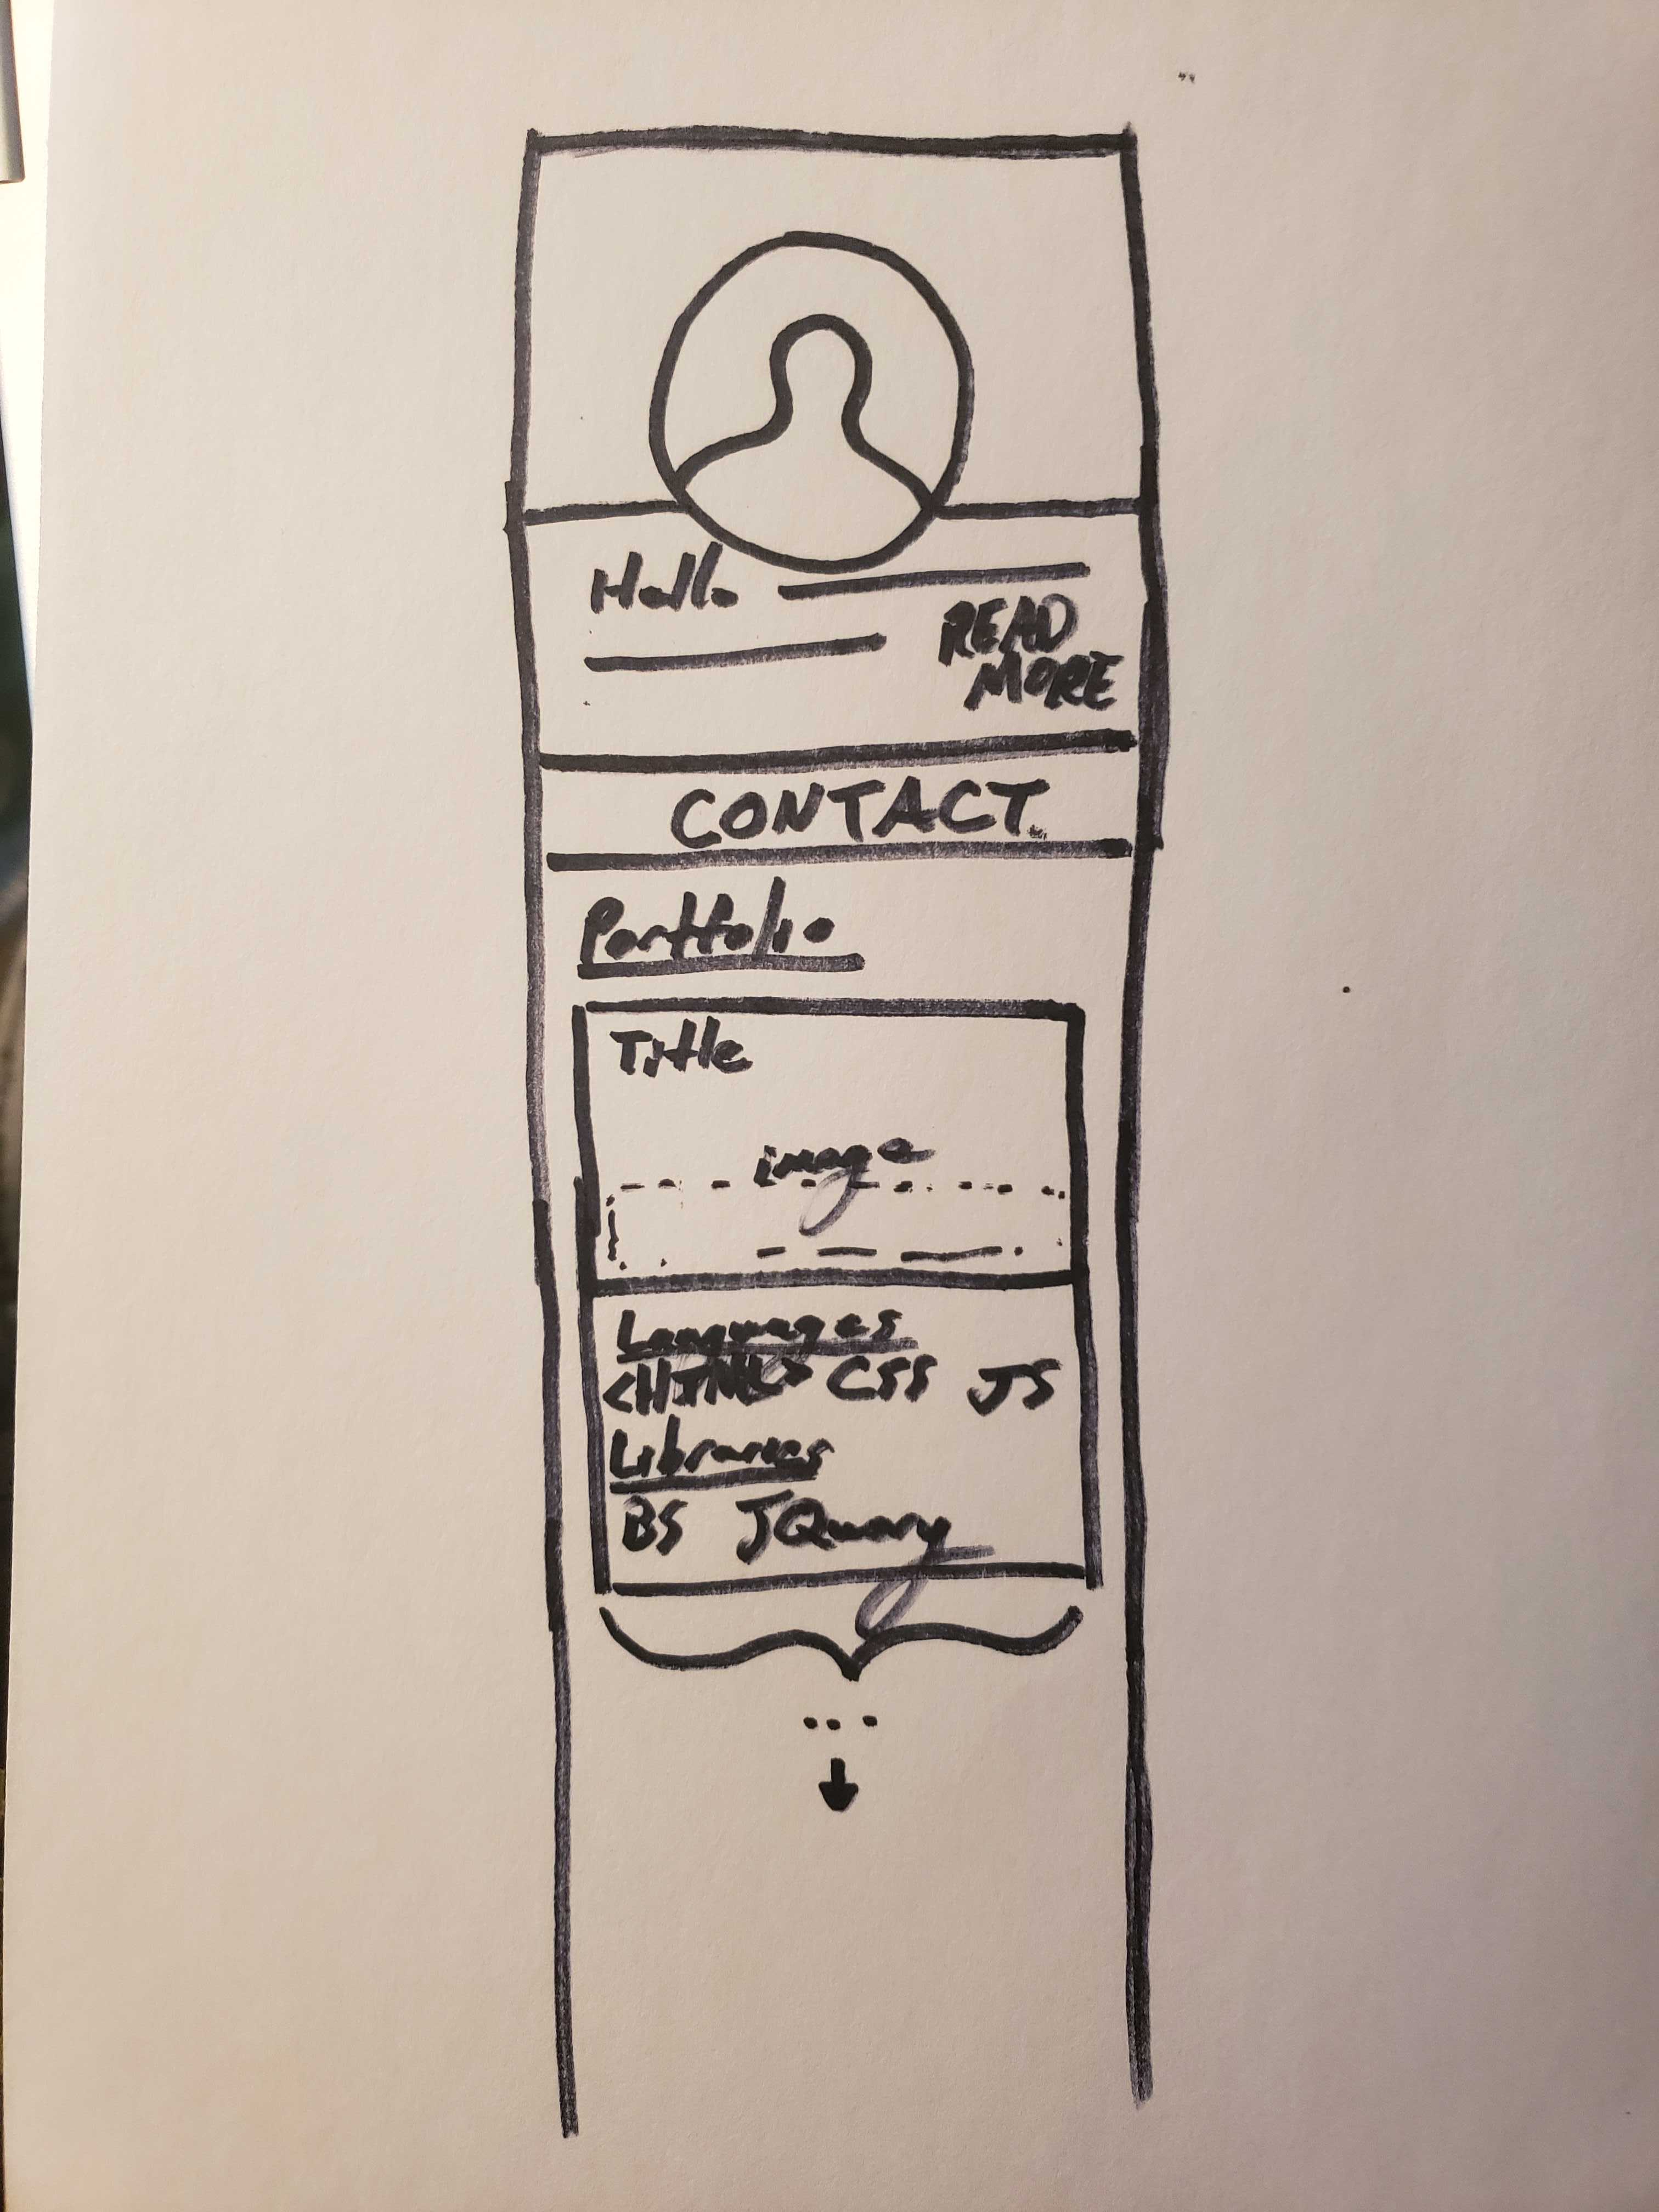 Hello
READ
MORE
CONTACT
Portfolio
Title
image
Languages
<HTML> CSS JS
Libraries
BS JQuery
...